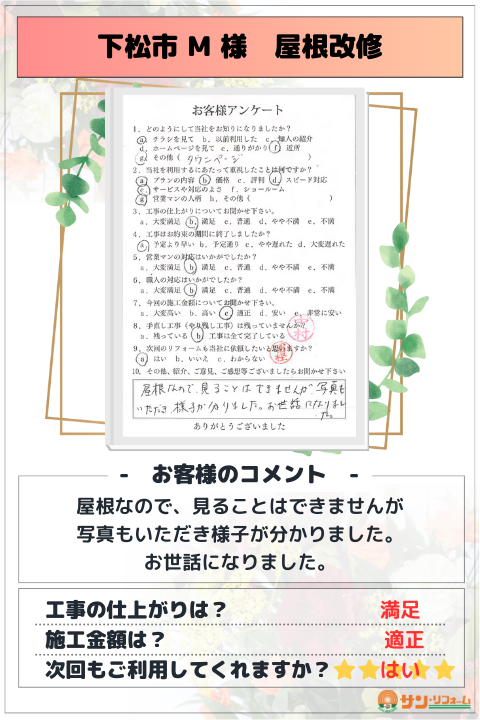 下松市 M 様　屋根改修
お客様アンケート
1．どのようにして当社をお知りになりましたか？
a．チラシを見て　b．以前利用した　c．知人の紹介
d．ホームページを見て　e．通りがかり　f．近所
g．その他（ タウンページ ）
2．当社を利用するにあたって重視したことは何ですか？
a．プランの内容　b．価格　c．評判　d．スピード対応
e．サービスや対応のよさ　f．ショールーム
g．営業マンの人柄　h．その他（　）
3．工事の仕上がりについてお聞かせ下さい。
a．大変満足　b．満足　c．普通　d．やや不満　e．不満
4．工事はお約束の期間に終了しましたか？
a．予定より早い　b．予定通り　c．やや遅れた　d．大変遅れた
5．営業マンの対応はいかがでしたか？
a．大変満足　b．満足　c．普通　d．やや不満　e．不満
6．職人の対応はいかがでしたか？
a．大変満足　b．満足　c．普通　d．やや不満　e．不満
7．今回の施工金額についてお聞かせ下さい。
a．大変高い　b．高い　c．適正　d．安い　e．非常に安い
8．手直し工事（やり残し工事）は残っていませんか？
a．残っている　b．工事は全て完了している
9．次回のリフォームも当社に依頼したいと思いますか？
a．はい　b．いいえ　c．わからない
10．その他、紹介、ご意見、ご感想等ございましたらお聞かせ下さい
屋根なので、見ることはできませんが 写真も
いただき 様子が分りました。お世話になりまし
た。
ありがとうございました
- お客様のコメント -
屋根なので、見ることはできませんが
写真もいただき様子が分かりました。
お世話になりました。
工事の仕上がりは？ 満足
施工金額は？ 適正
次回もご利用してくれますか？ はい
サン・リフォーム